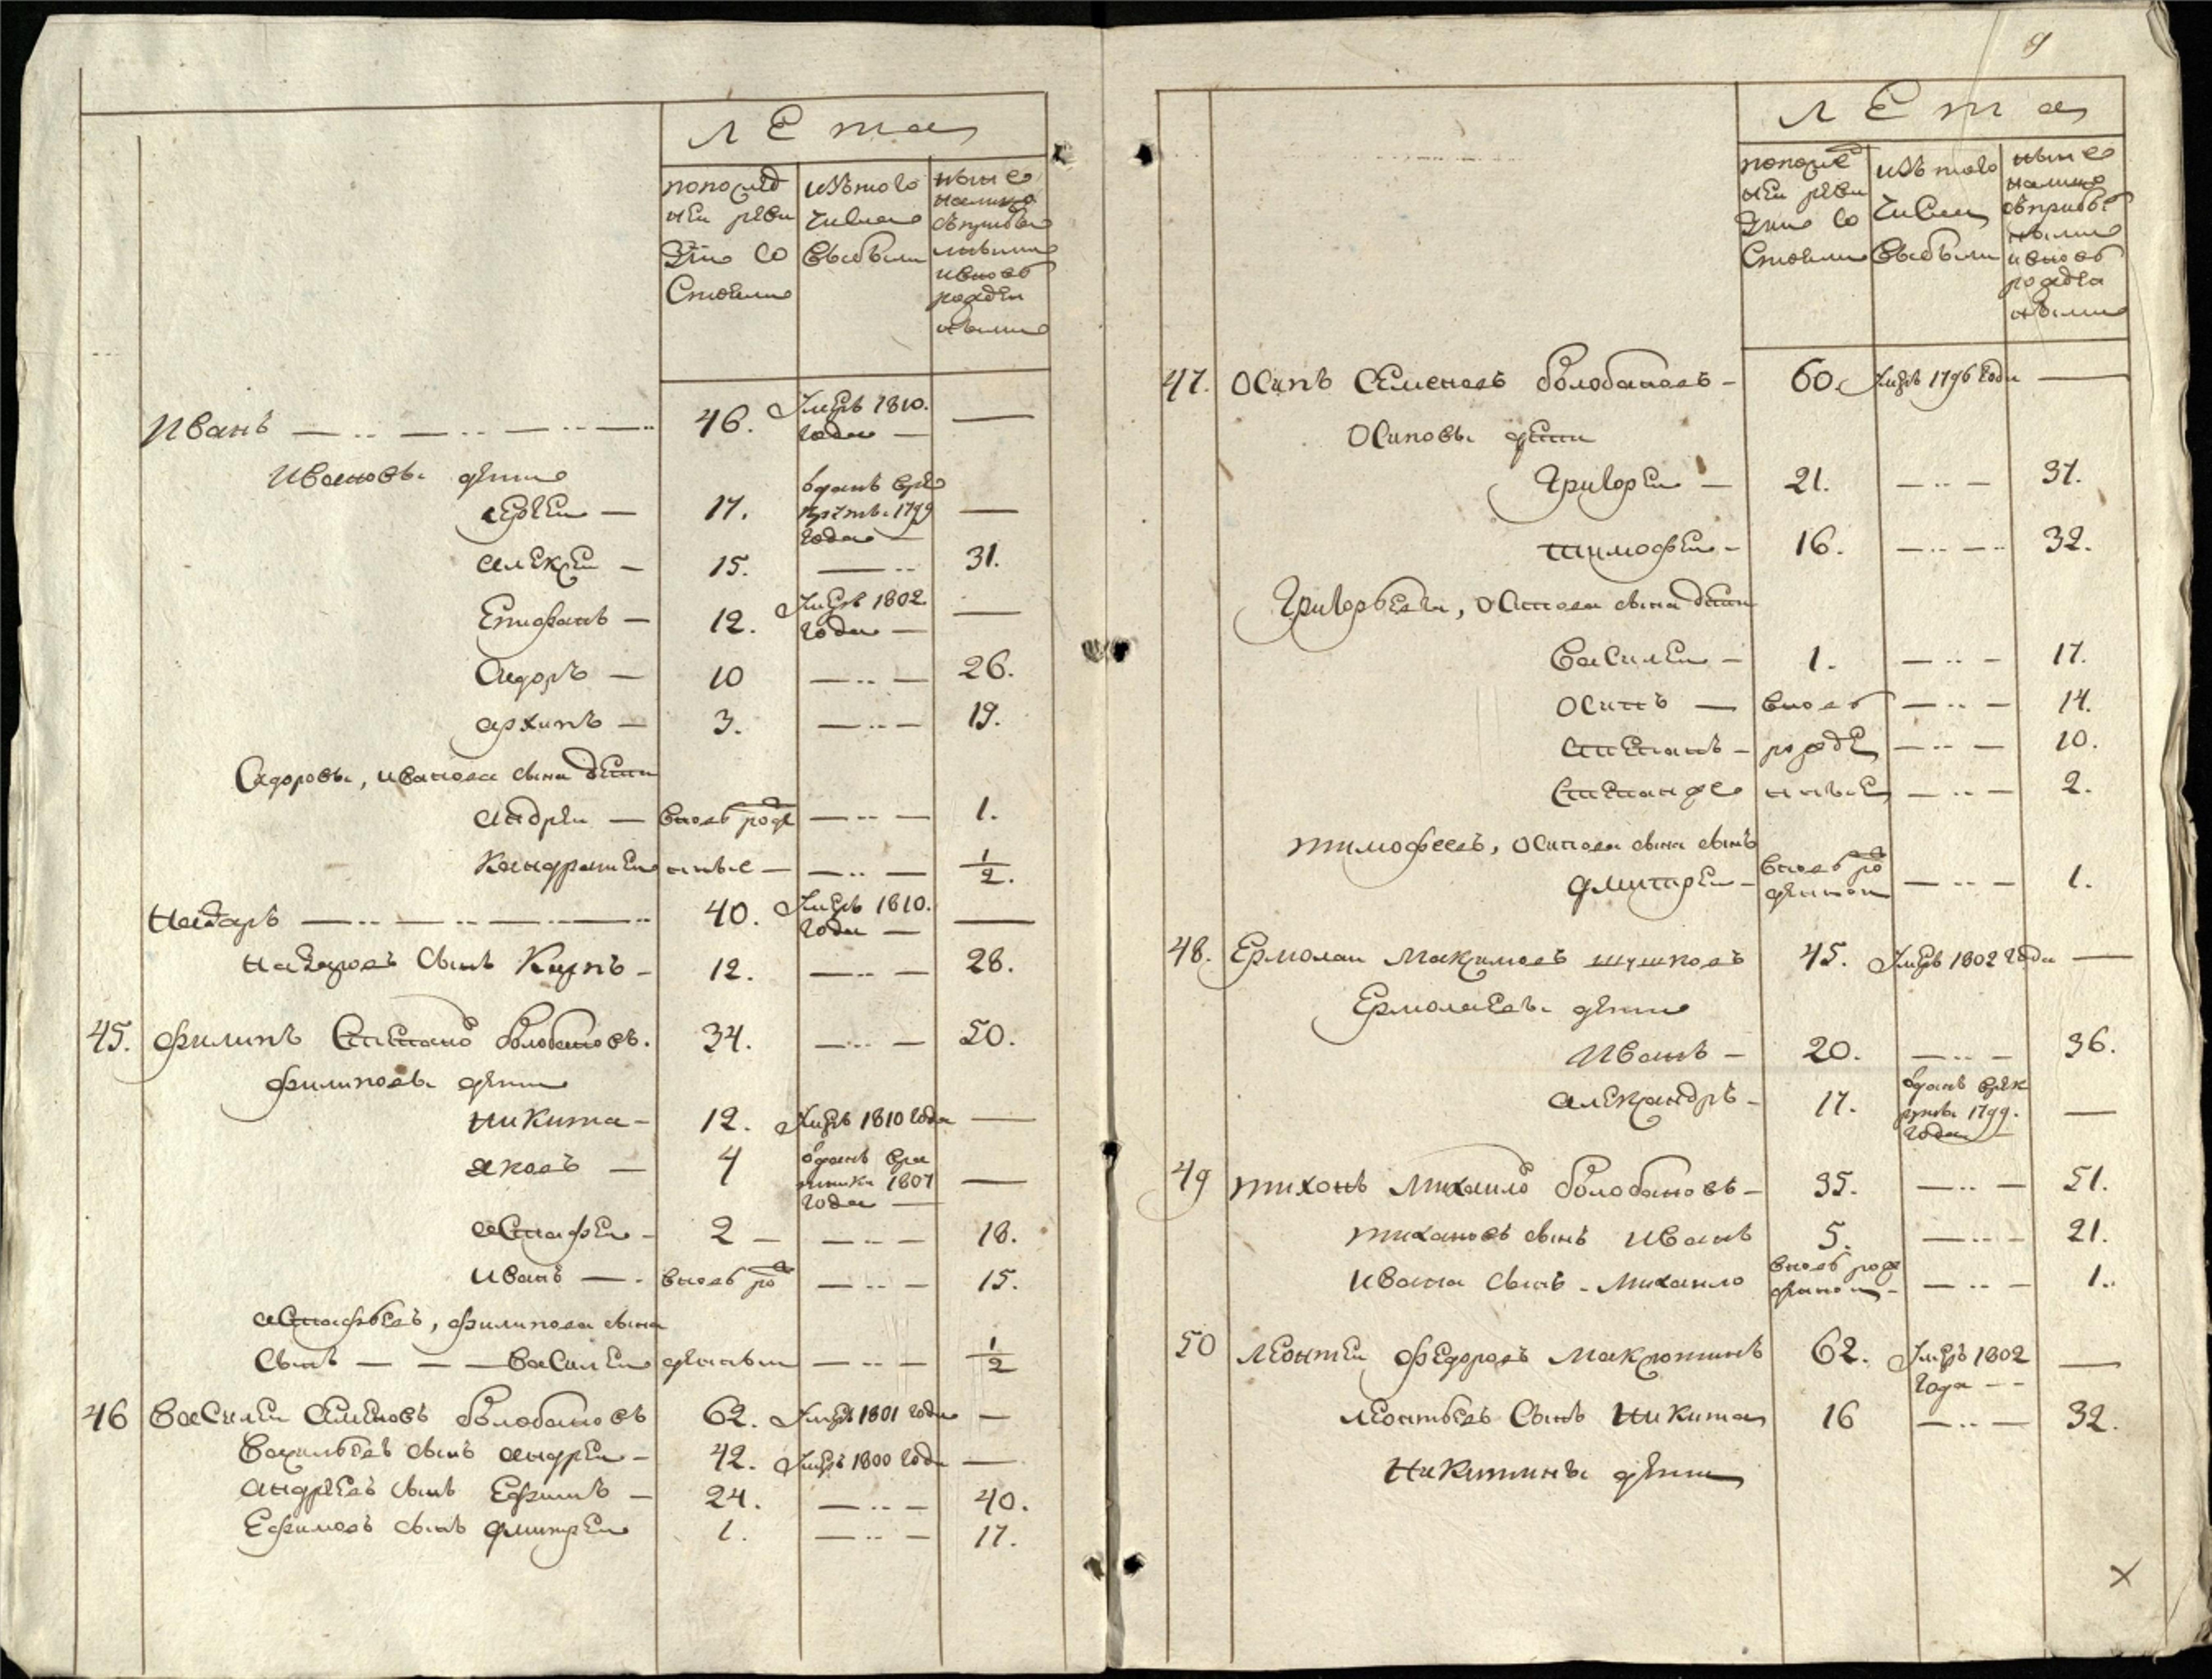 лЕта
попослед
ней реви
зии со
стояли
изътого
числа
выбыли
ныне
налицо
съприбы
лыми
ивновь
рожден
ными
Иванъ — 46. Умеръ 1810. —
года —
Ивановы дети
отданъ врѣ
Сергей — 17. крутъ 1799 —
года —
алексей — 15. — 31.
Епифанъ — 12. Умеръ 1802 —
года —
Сидоръ — 10 — 26.
архипъ — 3. — 19.
Сидоровы, иванова сына дети
андрей — вновь рожде — 1.
Кондратей нные — — 1/2.
Назаръ — 40. Умеръ 1810. —
года —
Назаровъ сынъ Карпъ — 12. — 28.
45. филипъ Степано болобановъ. 34. — 50.
филиповы дети
никита — 12. Умеръ 1810 года —
яковъ — 4 отданъ вра
тники 1807 —
года —
астафей — 2 — — 18.
иванъ — вновь рож — 15.
астафьевъ, филипова сына
сынъ — василей денныи — 1/2
46 василей семеновъ болобановъ 62. Умеръ 1801 года —
васильевъ сынъ андрей — 42. Умеръ 1800 года —
андреевъ сынъ Ефимъ — 24. — 40.
Ефимовъ сынъ дмитрей 1. — 17.
9
лЕта
попослед
ней реви
зии со
стояли
изътого
числа
выбыли
ныне
налицо
съприбы
лыми
ивновь
рожден
ными
47. Осипъ Семеновъ болобановъ — 60. Умеръ 1796 года —
Осиповы дети
Григорей — 21. — 37.
тимофей — 16. — 32.
Григорьевы, Осипова сына дети
василей — 1. — 17.
Осипъ — вновь — 14.
степанъ — рожде — 10.
степанже нные — 2.
тимофеевъ, осипова сына сынъ
дмитрей — вновь рож — 1.
денной
48. Ермолай Максимовъ шушковъ 45. Умеръ 1802 года —
Ермолаевы дети
Иванъ — 20. — 36.
отданъ врек
александръ — 17. руты 1799. —
года —
49 тихонъ Михайло болобановъ — 35. — 51.
тихановъ сынъ иванъ 5. — 21.
ивана сынъ - михайло вновь рож — 1.
денной —
50 леонтей федоровъ Макротинъ 62. Умеръ 1802 —
года --
леонтьевъ сынъ никита 16 — 32.
Никитины дети
×